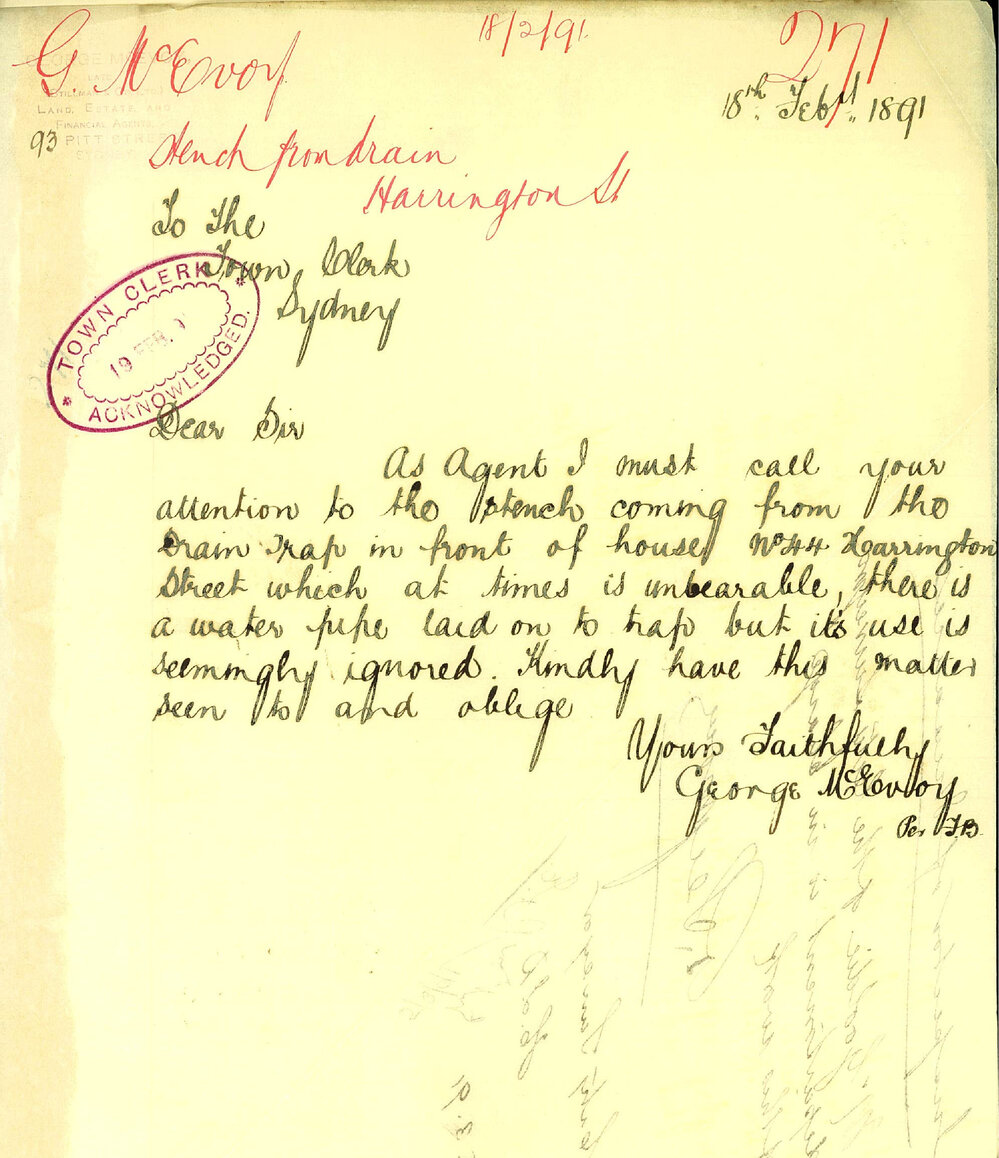 G. McEvoy
18/2/91.
271
LAND, ESTATE, AND
FINANCIAL AGENTS
93 PITT STREET
SYDNEY
18th. Feby. 1891
Stench from drain
Harrington St
To The
Town, Clerk
Sydney
TOWN CLERK
19 FEB. 9
ACKNOWLEDGED.
Dear Sir
As Agent I must call your
attention to the stench coming from the
Drain Trap in front of house, No 44 Harrington
Street which at times is unbearable, there is
a water pipe laid on to trap but its use is
seemingly ignored. Kindly have this matter
seen to and oblige
Yours Faithfully
George McEvoy
Per J.B.